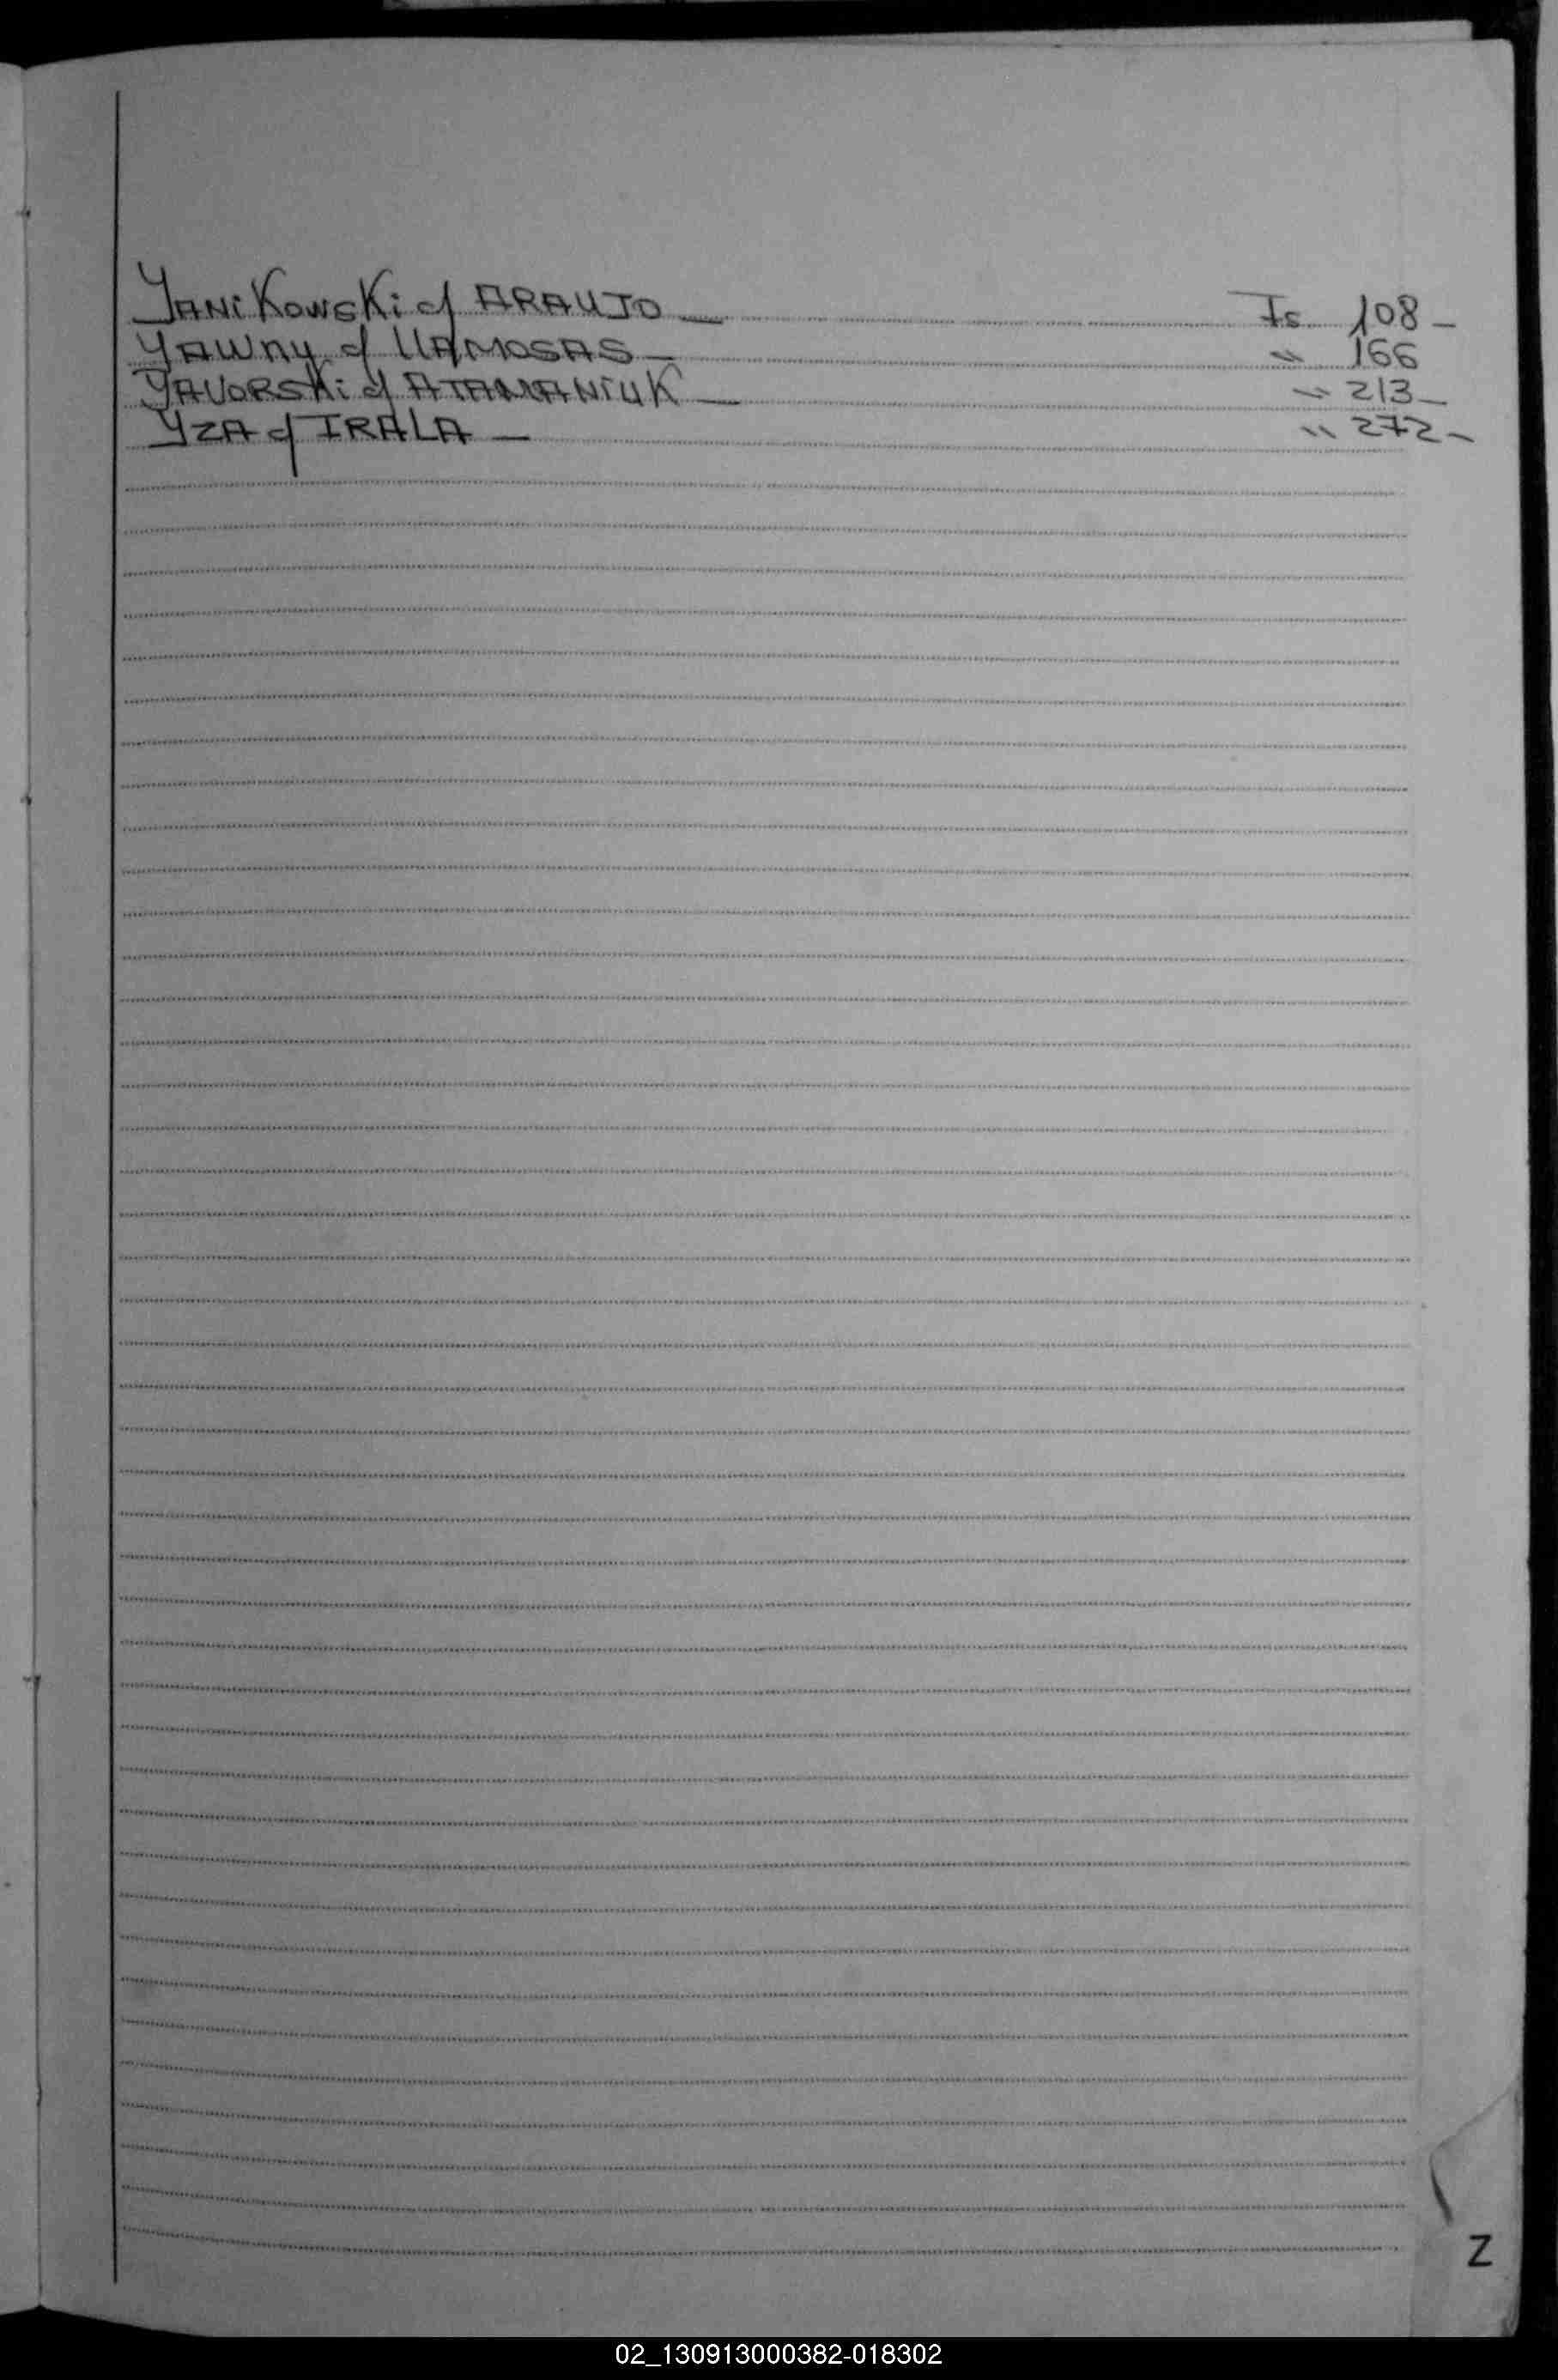 YANiKowsKi c/ ARAUJO — Fs 108 —
YAWNY c/ LLAMOSAS — " 166
YAVORSKi c/ ATAMANIUK — " 213 —
YZA c/ IRALA — " 272 —
Z
02_130913000382-018302